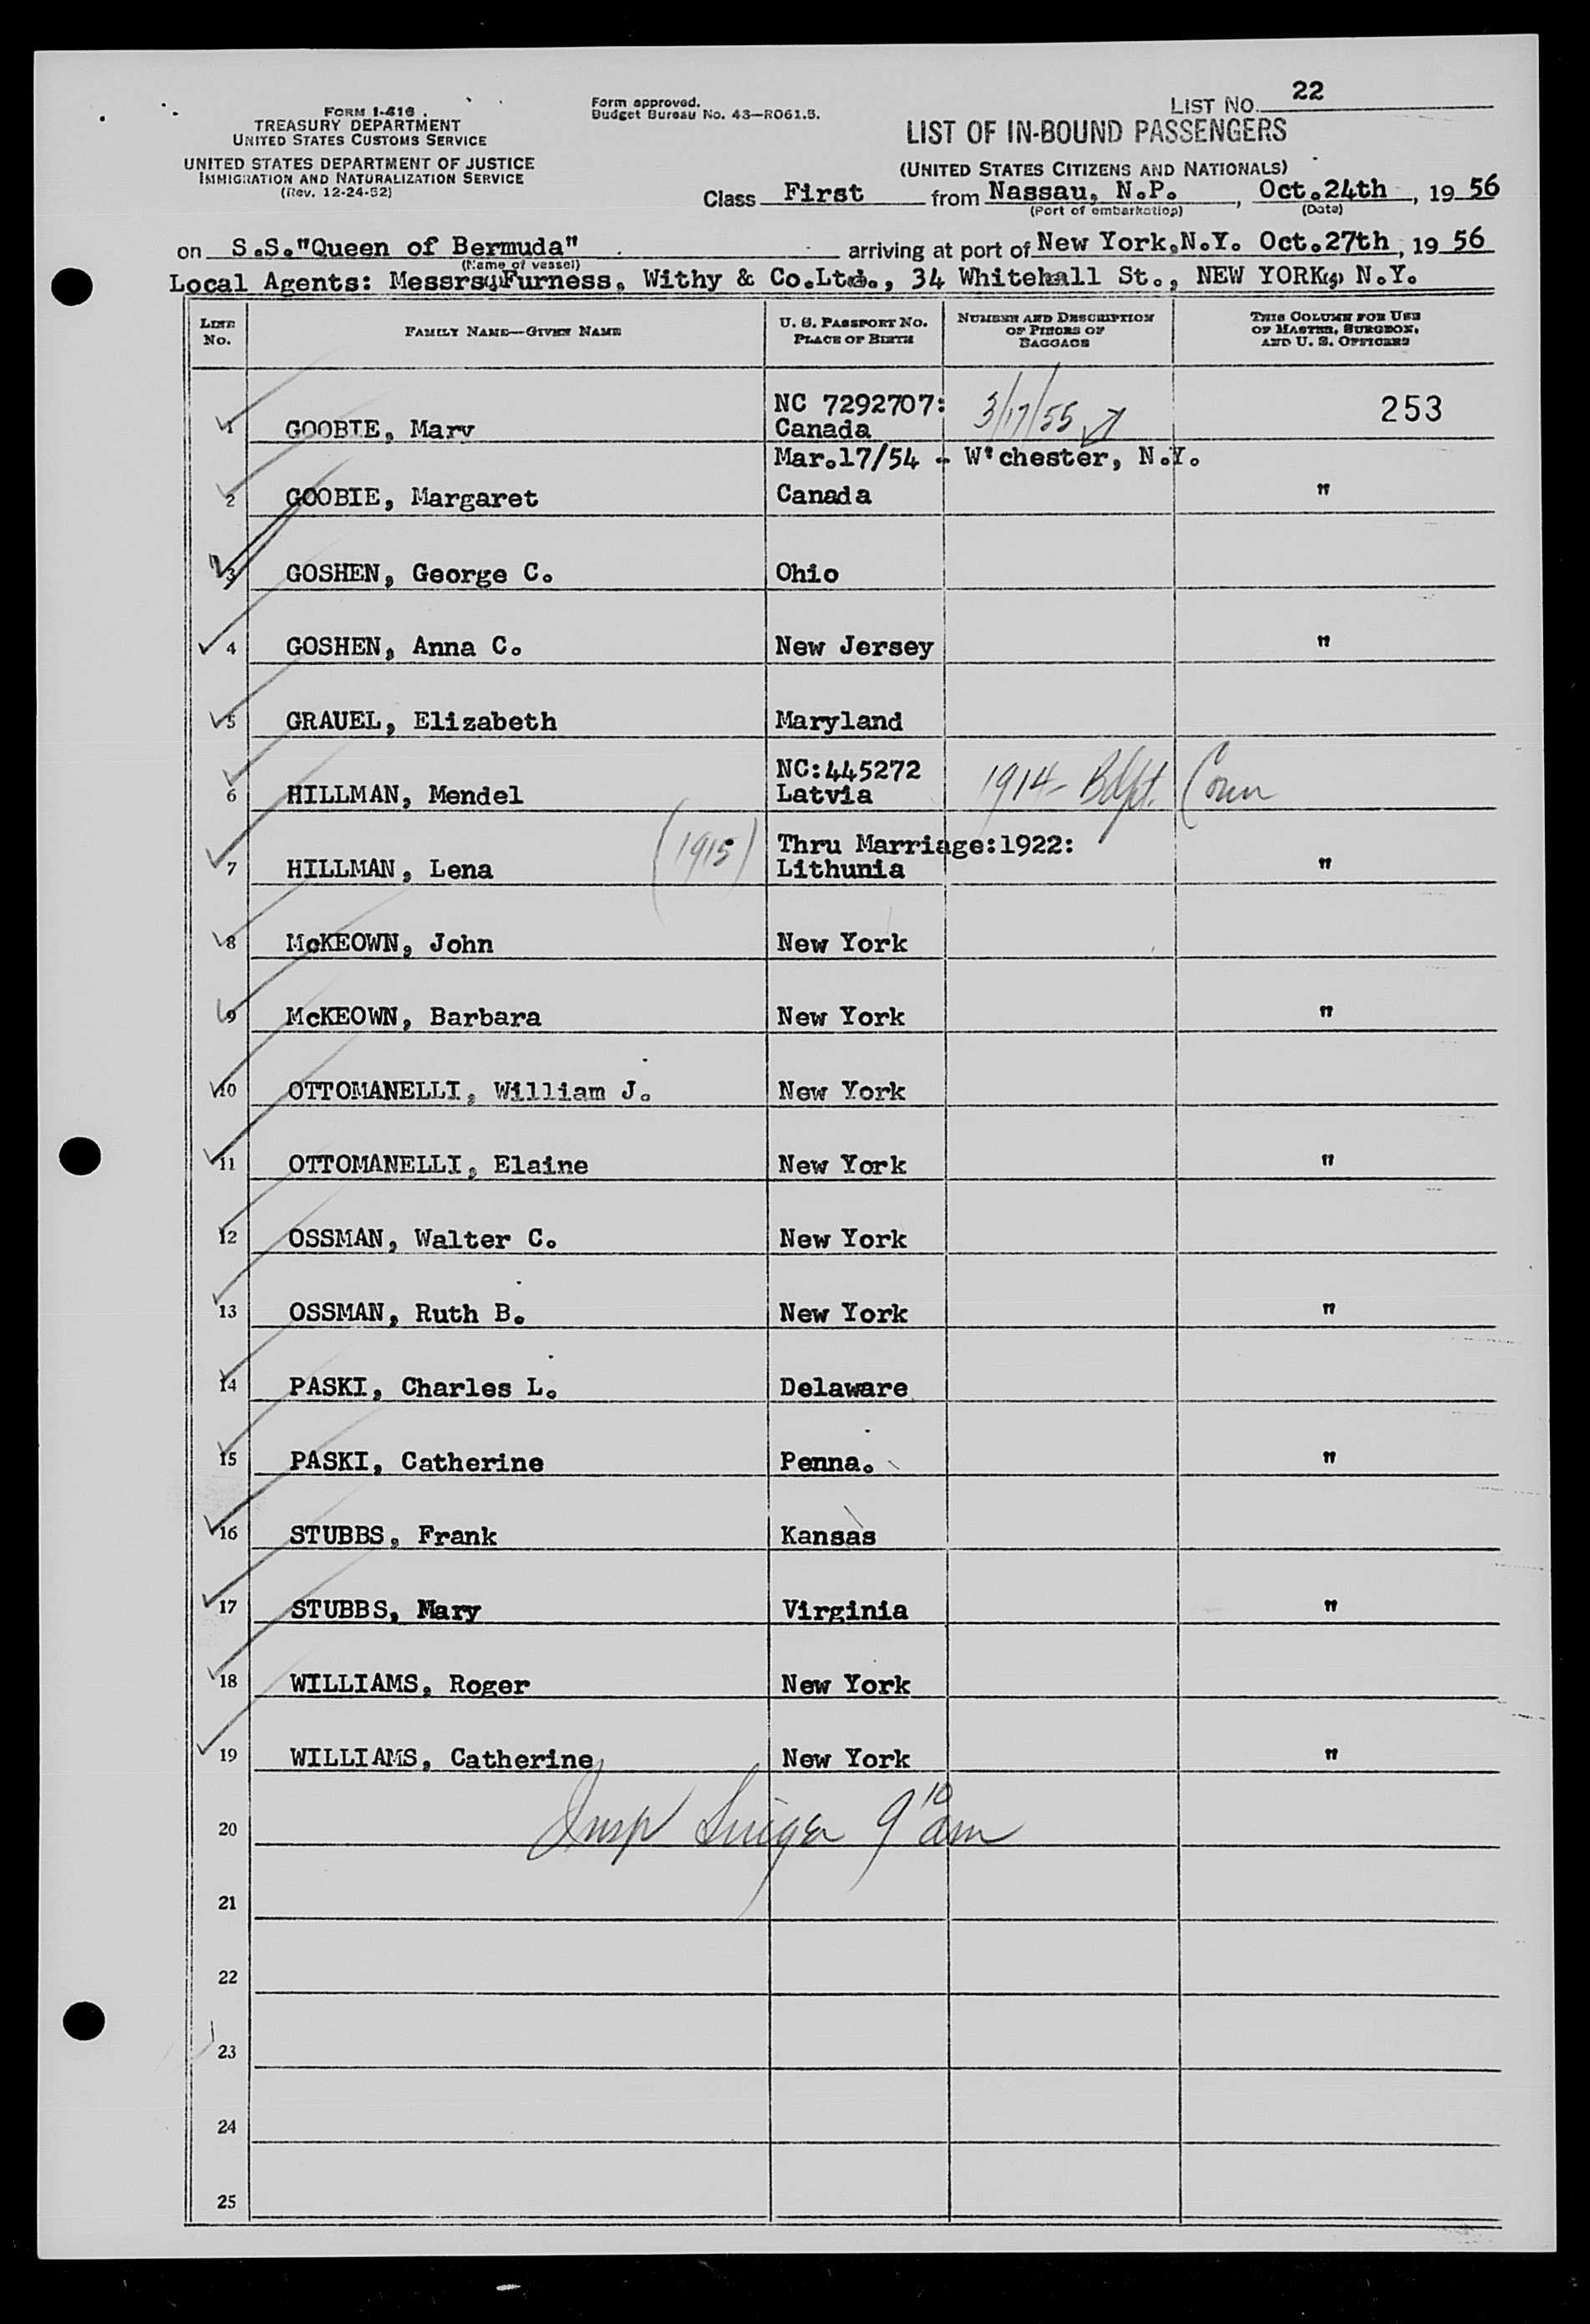 LIST NO. 22
FORM I-416
TREASURY DEPARTMENT
UNITED STATES CUSTOMS SERVICE
UNITED STATES DEPARTMENT OF JUSTICE
IMMIGRATION AND NATURALIZATION SERVICE
(Rev. 12-24-52)
Form approved.
Budget Bureau No. 43—R061.5.
LIST OF IN-BOUND PASSENGERS
(UNITED STATES CITIZENS AND NATIONALS)
Class First from Nassau, N.P., Oct.24th, 19 56
(Port of embarkation) (Date)
on S.S."Queen of Bermuda" arriving at port of New York,N.Y. Oct.27th, 19 56
(Name of vessel)
Local Agents: Messrs. Furness, Withy & Co.Ltd., 34 Whitehall St., NEW YORK, N.Y.
LINE No. FAMILY NAME—GIVEN NAME U. S. PASSPORT NO. PLACE OF BIRTH NUMBER AND DESCRIPTION OF PIECES OF BAGGAGE THIS COLUMN FOR USE OF MASTER, SURGEON, AND U. S. OFFICERS
NC 7292707: 3/17/55 253
1 GOOBIE, Mary Canada
Mar.17/54 - W'chester, N.Y.
2 GOOBIE, Margaret Canada "
3 GOSHEN, George C. Ohio
4 GOSHEN, Anna C. New Jersey "
5 GRAUEL, Elizabeth Maryland
NC:445272
6 HILLMAN, Mendel Latvia 1914- Bdpt. Conn
(1915) Thru Marriage:1922:
7 HILLMAN, Lena Lithunia "
8 McKEOWN, John New York
9 McKEOWN, Barbara New York "
10 OTTOMANELLI, William J. New York
11 OTTOMANELLI, Elaine New York "
12 OSSMAN, Walter C. New York
13 OSSMAN, Ruth B. New York "
14 PASKI, Charles L. Delaware
15 PASKI, Catherine Penna. "
16 STUBBS, Frank Kansas
17 STUBBS, Mary Virginia "
18 WILLIAMS, Roger New York
19 WILLIAMS, Catherine New York "
Insp Singer 9 10 am
20
21
22
23
24
25